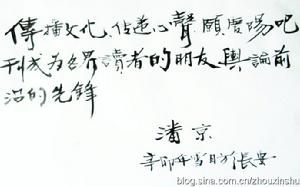 傳播文化、传递心聲願应场吧
刊成为各界讀者的朋友與論前
沿的先锋
潘京
辛卯年当日方長安
blog.sina.com.cn/zhouxinshu